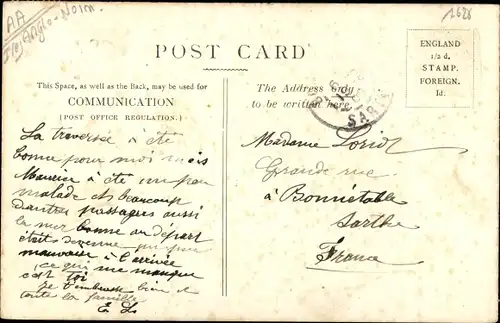 AA
Anglo-Norm.
1628
POST CARD
ENGLAND
1/2 d.
STAMP.
FOREIGN.
1d.
This Space, as well as the Back, may be used for
COMMUNICATION
(POST OFFICE REGULATION.)
The Address only
to be written here.
SARTHE
La traversée a été
bonne pour moi mais
Maurice a été un peu
malade et beaucoup
d'autres passagers aussi
la mer bonne au départ
était devenue un peu
mauvaise à l'arrivée
ce qui me manque
c'est toi
je t'embrasse bien et
toute la famille
E L
Madame Loriot
Grande rue
à Bonnétable
Sarthe
France